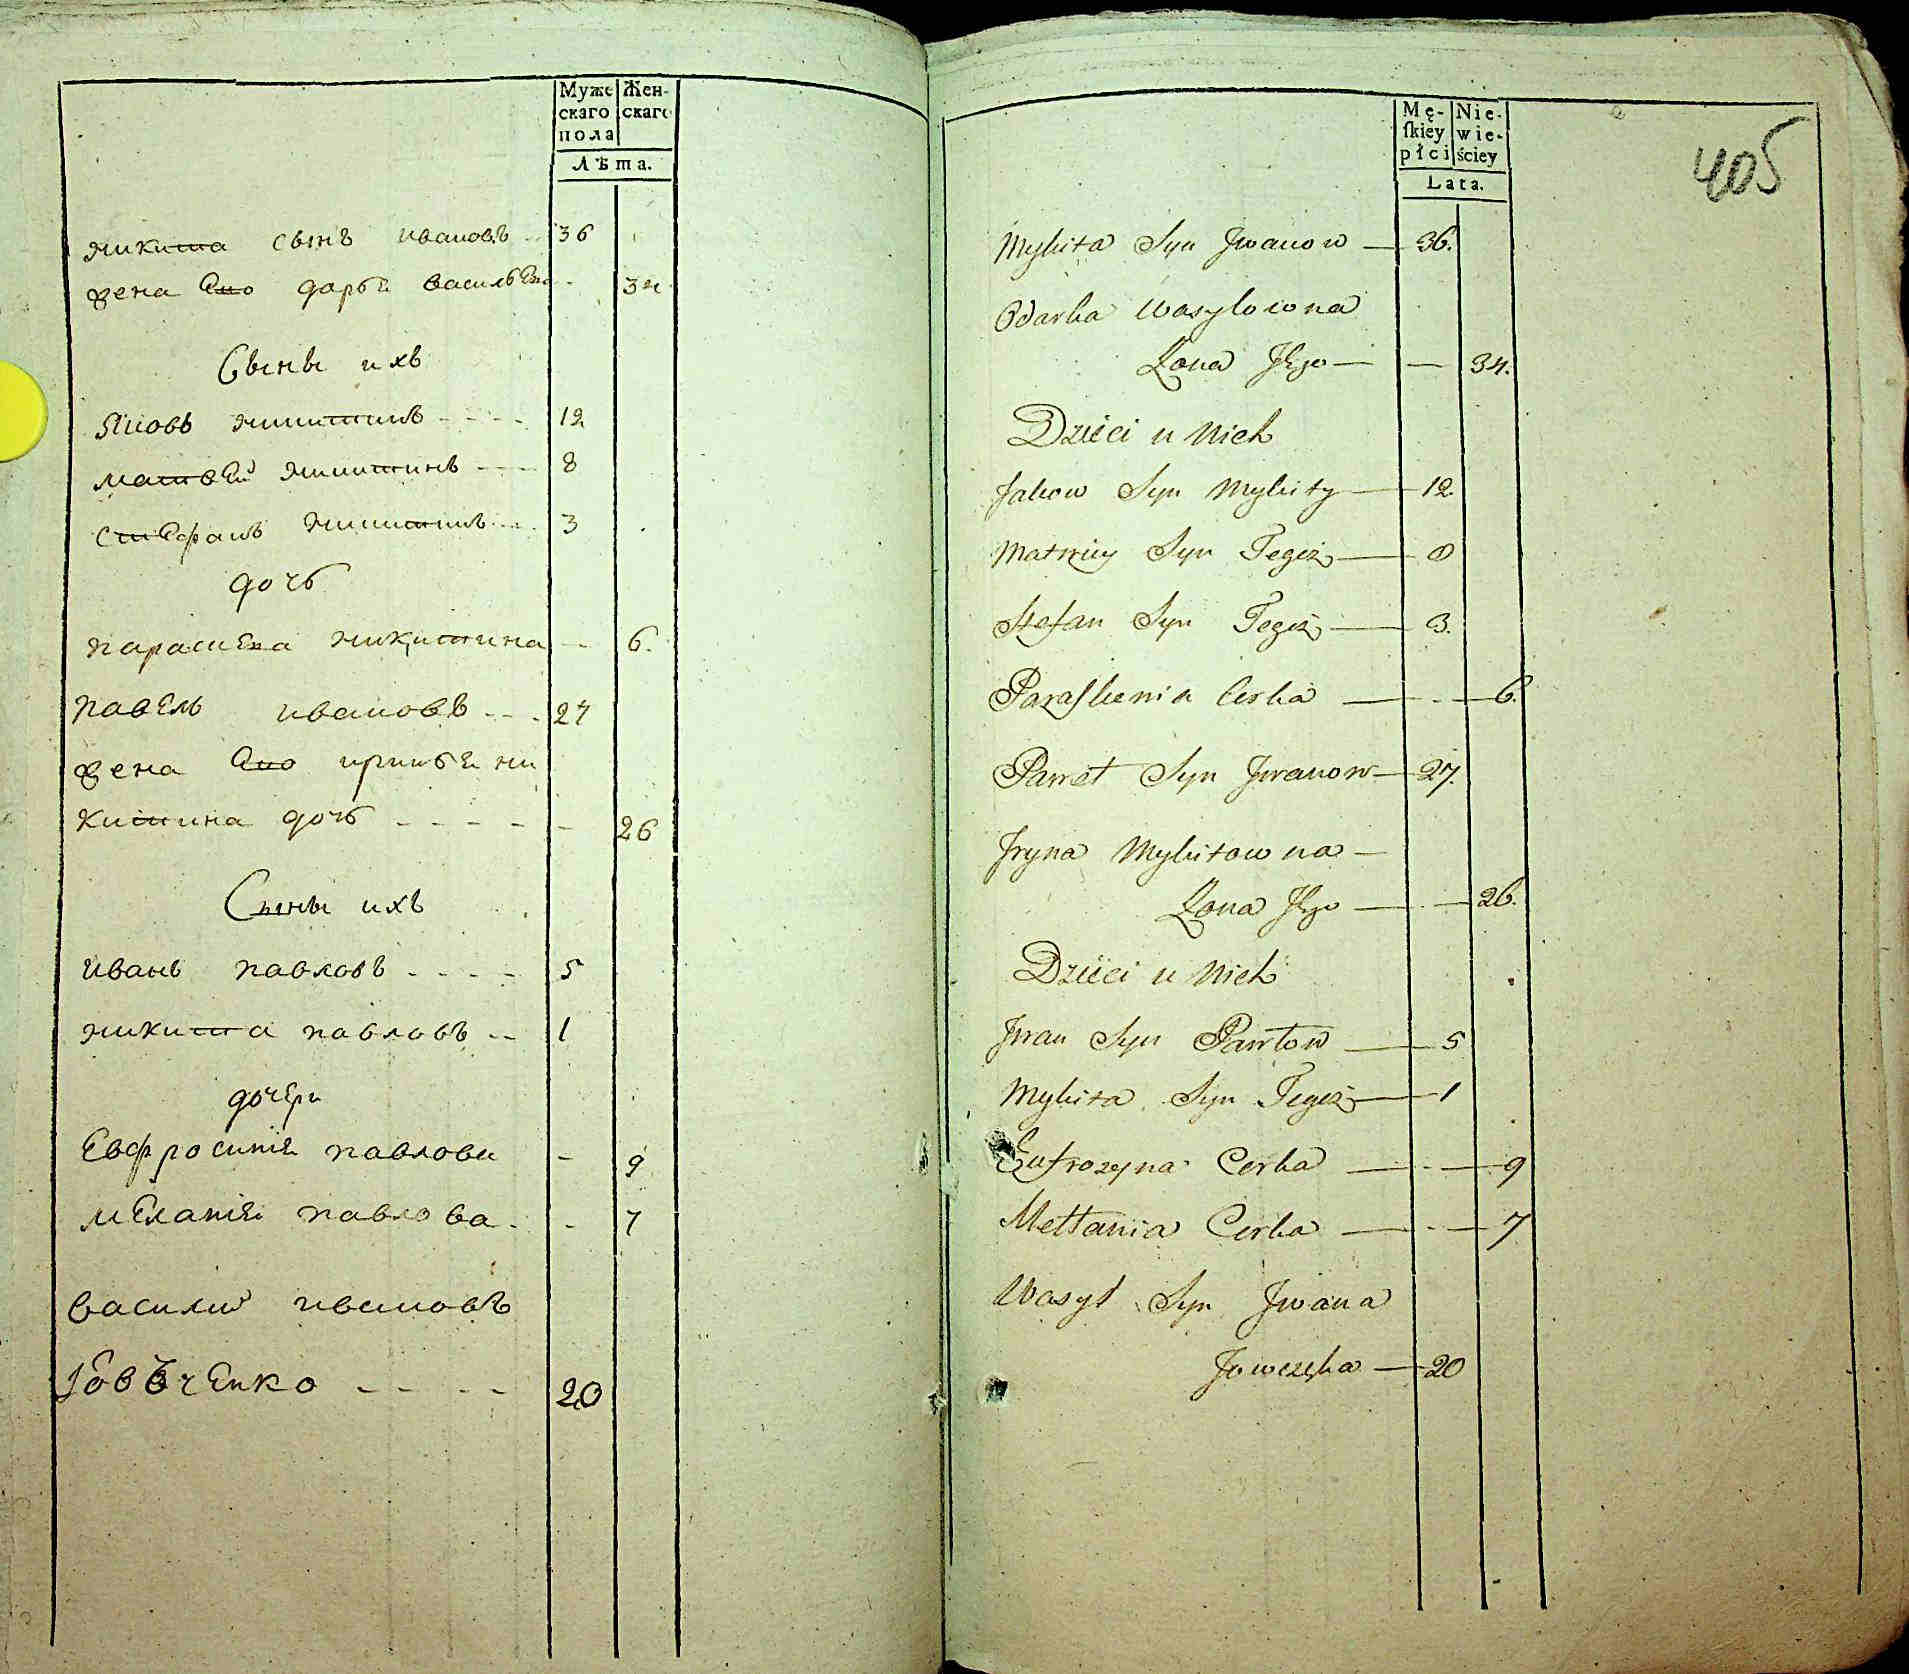 Муже Жен-
скаго скаго
пола
Лѣта.
никита сынъ ивановъ 36
жена Его дарья васильева 34
Сыны ихъ
Яковъ никитинъ 12
матвей никитинъ 8
стефанъ никитинъ 3
дочь
параскева никитина 6.
павелъ ивановъ 27
жена Его ирина ни
китина дочь 26
Сыны ихъ
иванъ павловъ 5
никита павловъ 1
дочери
Евфросинія павлова 9
меланія павлова 7
василий ивановъ
20
Mę- Nie-
ſkiey wie-
płci ściey
Lata.
405
Mykita Syn Jwanow 36.
Odarka Wasylowna
Żona Jego 34.
Dzieci u Nich
Jakow Syn Mykity 12
Matwiy Syn Tegoż 8
Stefan Syn Tegoż 3.
Paraskewia Corka 6.
Paweł Syn Jwanow 27.
Jryna Mykitowna
Żona Jego 26.
Dzieci u Nich
Jwan Syn Pawłow 5
Mykita Syn Tegoż 1
Eufrozyna Corka 9
Mełłania Corka 7
Wasyl Syn Jwana
20